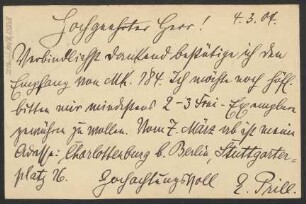 Hochgeehrter Herr! 4.3.04.
Verbindlichst dankend bestätige ich den
Empfang von Mk. 184. Ich möchte noch höfl.
bitten mir mindestens 2-3 Frei-Exemplare
gewähren zu wollen. Vom 7. März ab ist meine
Adresse: Charlottenburg b. Berlin, Stuttgarter-
platz 16. Hochachtungsvoll
E. Prill.